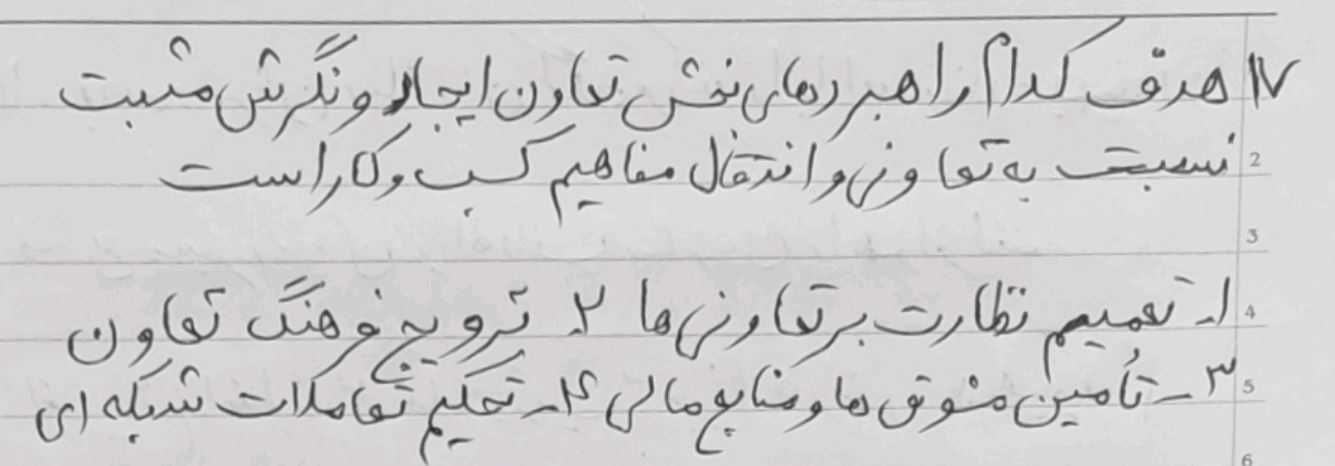 ۱۷ هدف کدام راهبردهای بخش تعاون ایجاد و نگرش مثبت
2 نسبت به تعاونی و انتقال مفاهیم کسب و کار است
3
4 ۱ـ تعمیم نظارت بر تعاونی ها ۲ـ ترویج فرهنگ تعاون
5 ۳ـ تأمین مشوق ها و منابع مالی ۴ـ تحکیم تعاملات شبکه ای
6